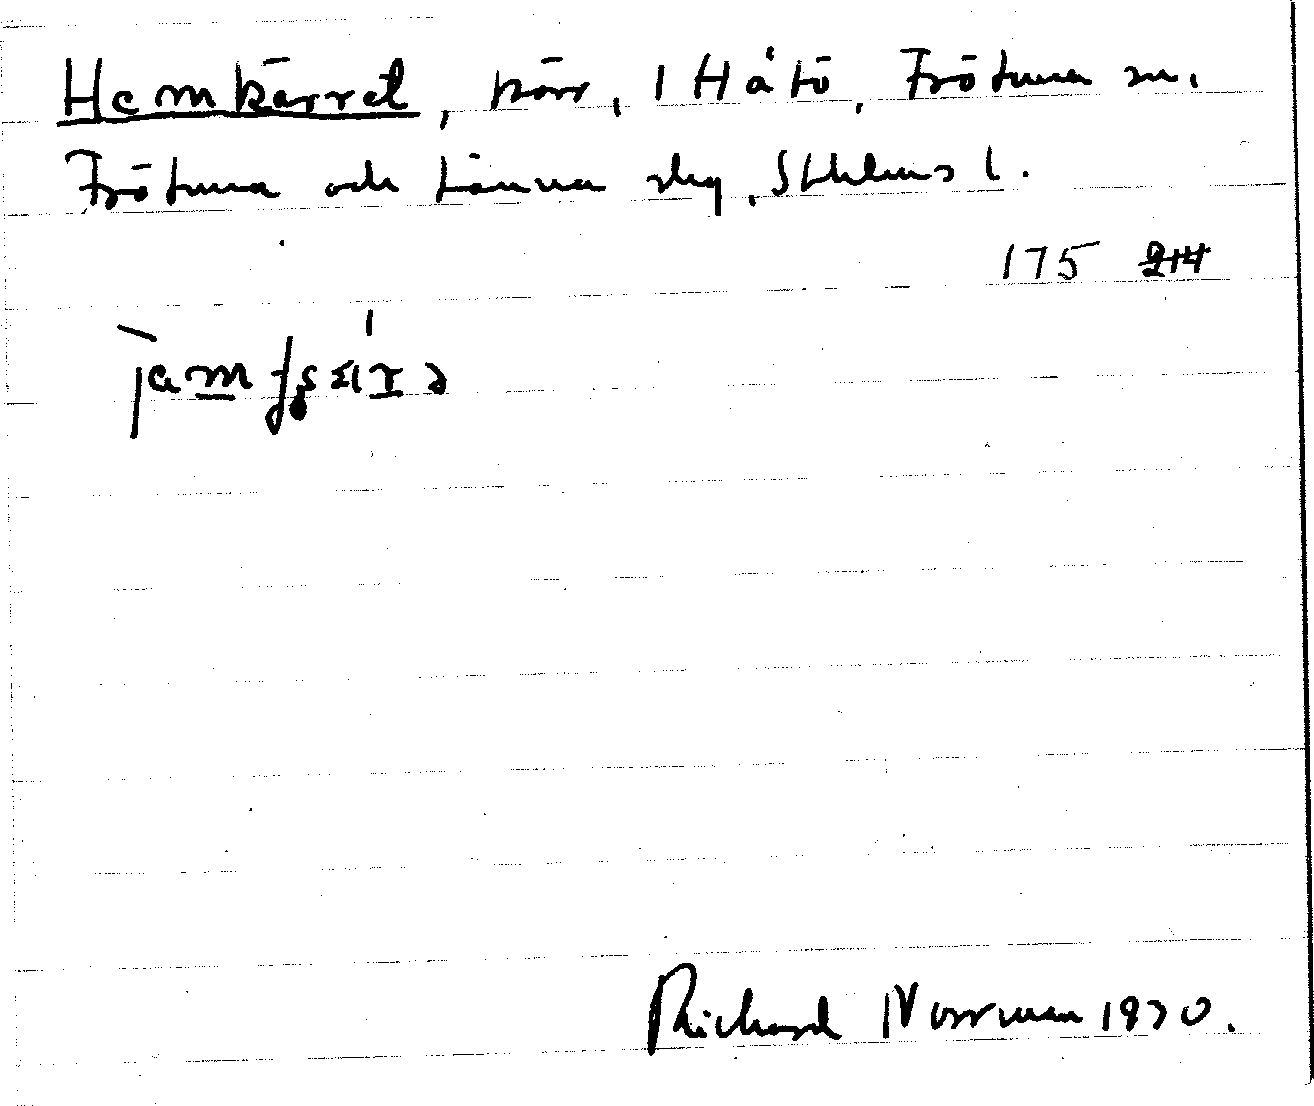 Hemkärret, kärr, i Håtö, Frötuna sn,
Frötuna och Länna slg, Sthlms l.
175
Richard Norrman 1970.